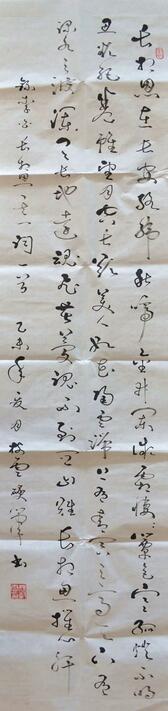 長相思在長安絡緯秋啼金井闌微霜淒淒簟色寒孤燈不明
思欲絕卷帷望月空長歎美人如花隔雲端上有青冥之高天下有
淥水之波瀾天長地遠魂飛苦夢魂不到關山難長相思摧心肝
錄李白長相思 詞一首 乙未年夏月 書